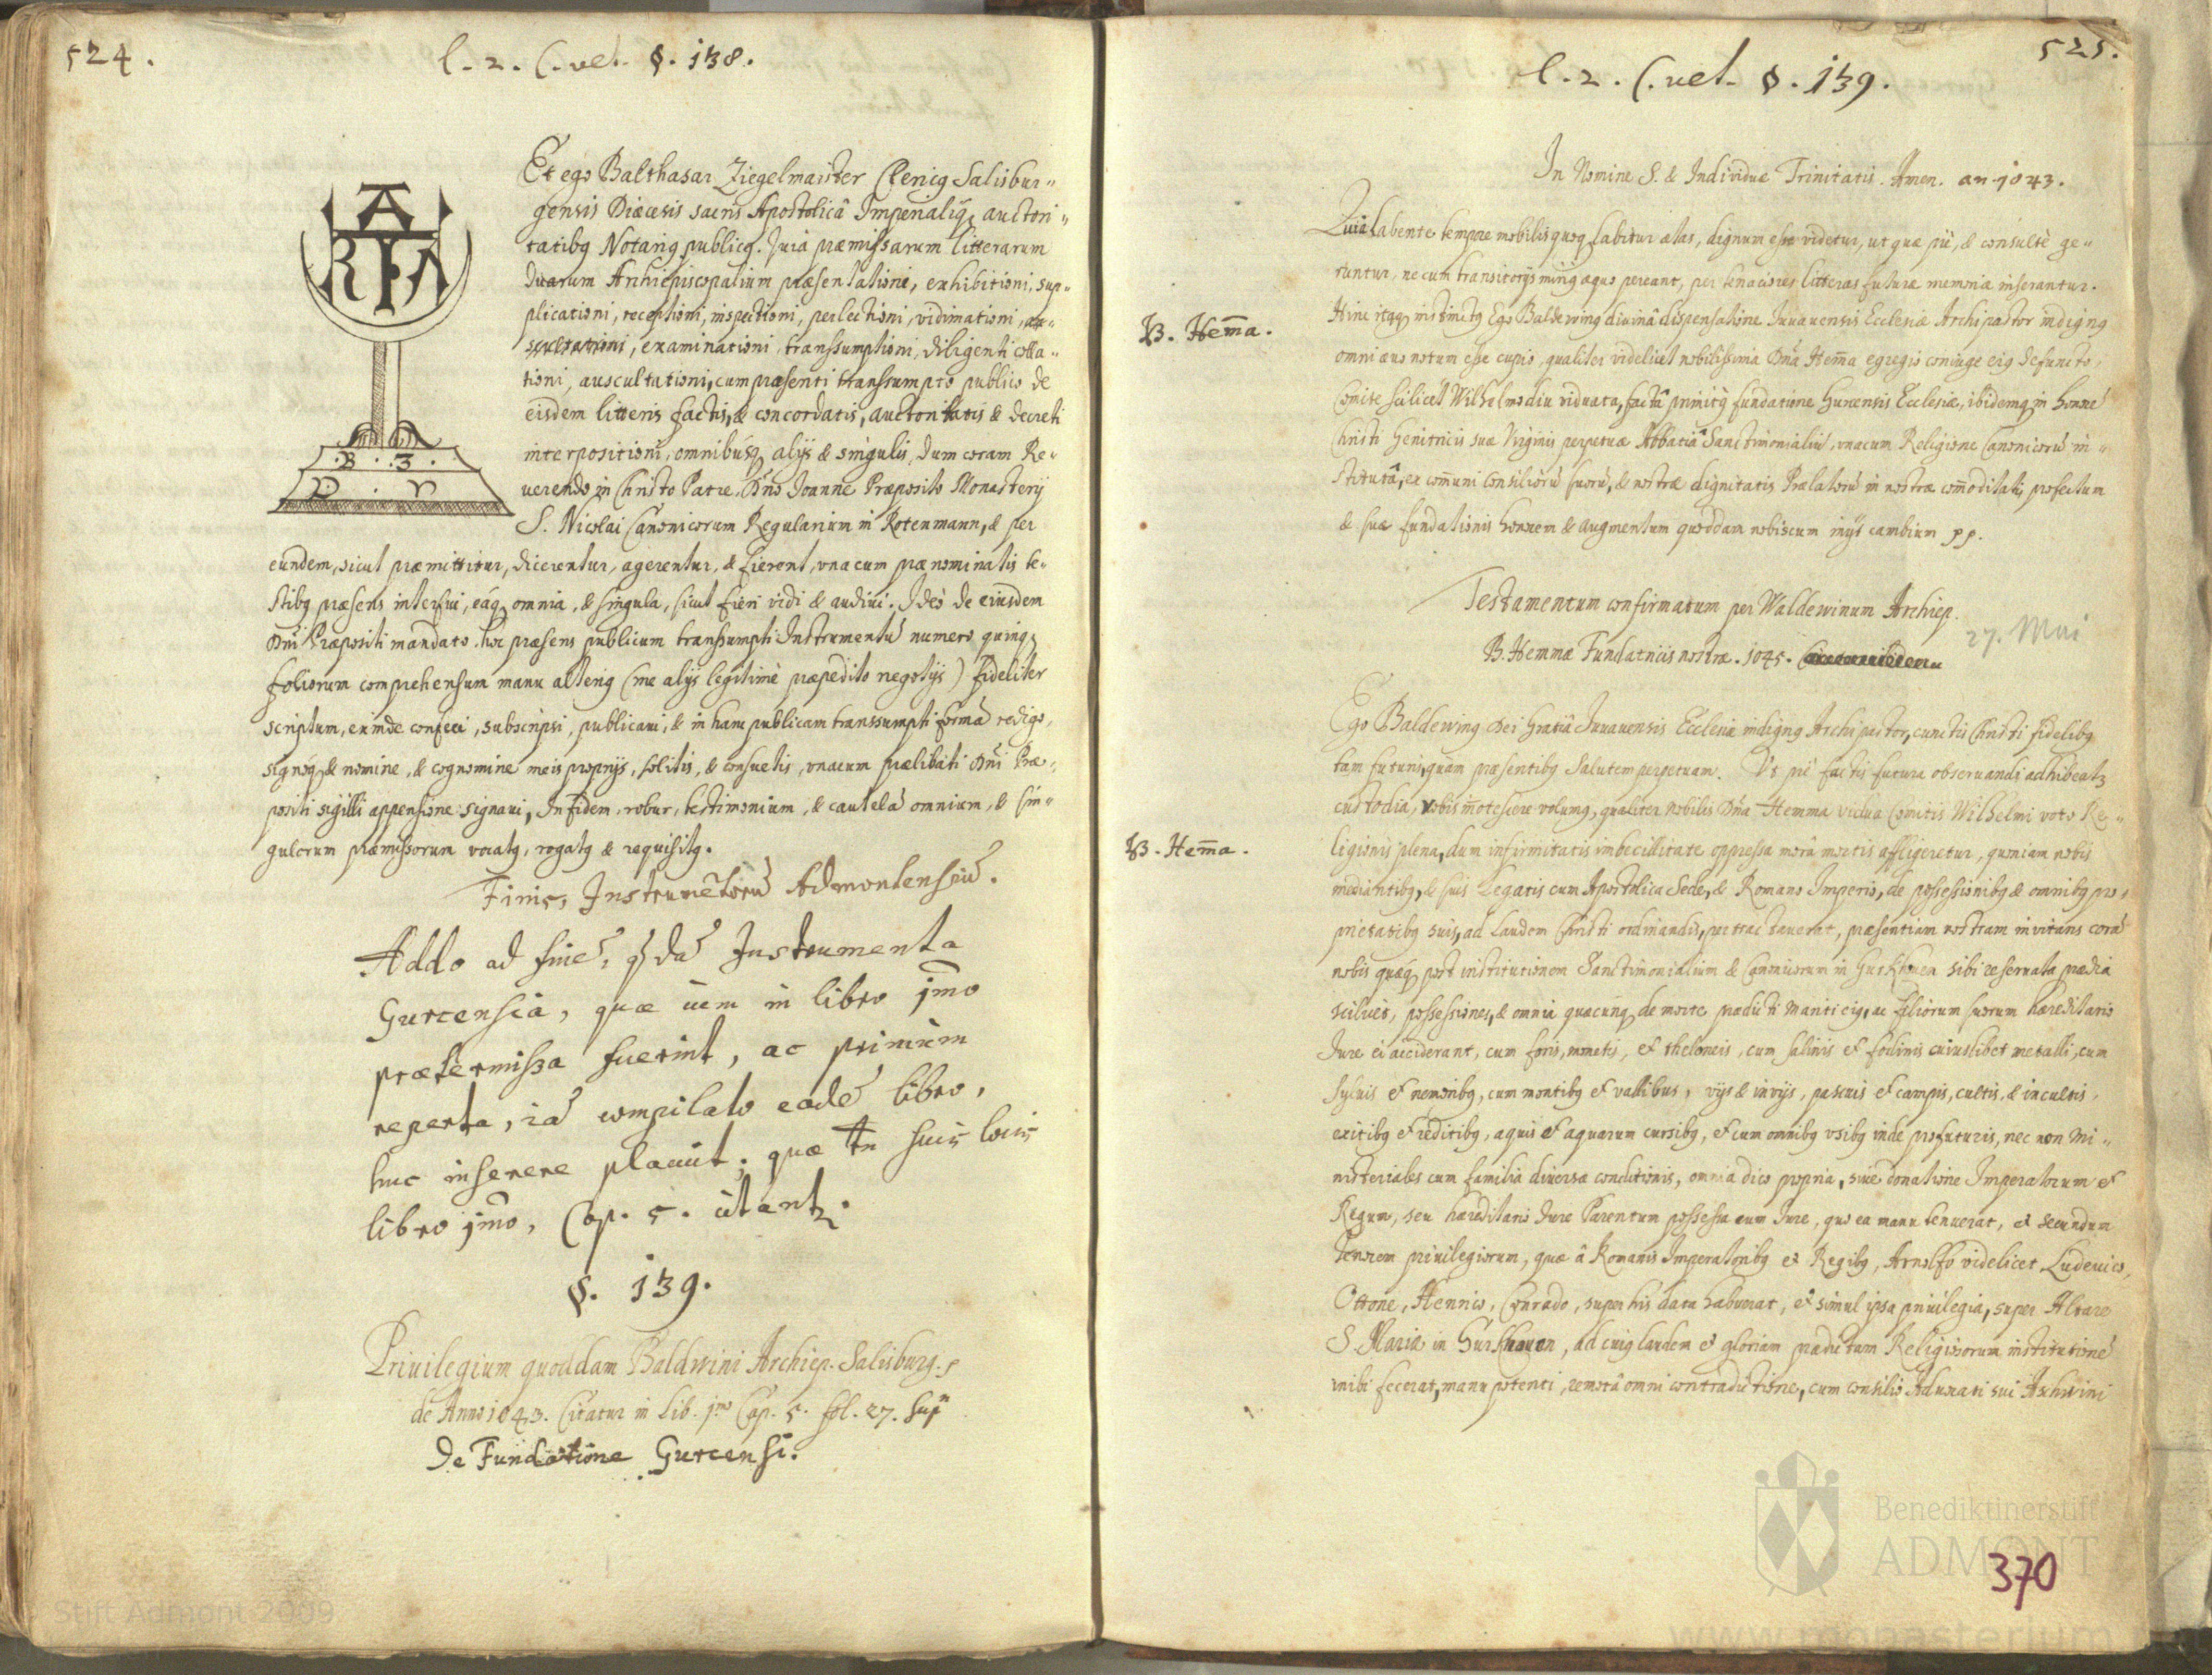 524.
l. 2. C. vet. §. 138.
A
R F A
. B . . 3 .
D . r
Et ego Balthasar Ziegelmaister Clericꝰ Salisbur„
gensis Diæcesis sacris Apostolicâ Imperialiqꝫ auctori„
tatibꝰ Notariꝰ publicꝰ. Quia præmissarum litterarum
duarum Archiepiscopalium præsentationi, exhibitioni, sup„
plicationi, receptioni, inspectioni, perlectioni, vidimationi,
examinationi, transsumptioni, diligenti colla„
tioni, auscultationi, cum præsenti transsumpto publico de
eisdem litteris factis, & concordatis, auctoritatis & decreti
interpositioni, omnibusqꝫ alijs & singulis, dum coram Re„
uerendo in Christo Patre, Dno Joanne Præposito Monasterij
S. Nicolai Canonicorum Regularium in Rotenmann, & per
eundem, sicut præmittitur, dicerentur, agerentur, & fierent, vna cum prænominatis te„
stibꝰ præsens interfui, eáqꝫ omnia, & singula, sicut fieri vidi & audiui. Ideò de eiusdem
Dni Præpositi mandato hoc præsens publicum transsumpti Instrumentũ numero quinqꝫ
foliorum comprehensum manu alteriꝰ (me alijs legitimè præpedito negotijs) fideliter
scriptum, exinde confeci, subscripsi, publicaui, & in hanc publicam transsumpti formã redigo,
signoqꝫ & nomine, & cognomine meis proprijs, solitis, & consuetis, vna cum prælibati Dni Præ„
positi sigilli appensione signaui, In fidem, robur, testimonium, & cautelã omnium, & sin„
gulorum præmissorum vocatꝰ, rogatꝰ & requisitꝰ.
Finis, Instrumẽtorũ Admontensiũ.
Addo ad finẽ, qꝫdã Instrumenta
Gurcensia, quæ in libro jmo
prætermissa fuerint, ac primùm
reperta, iã compilato eodẽ libro,
huc inserere placuit; quæ tn suis locis
libro jmo, Cap. 5. citantꝛ.
§. 139.
Priuilegium quoddam Baldwini Archiep. Salisburg.
de Anno 1043. Citatur in Lib. jmo Cap. 5. fol. 27. sup
De Fundatione Gurcensi.
525.
l. 2. C. vet. §. 139.
In Nomine S. & Individuæ Trinitatis. Amen. an. 1043.
Quia labente tempore mobilis quoqꝫ labitur ætas, dignum esse videtur, ut quæ piè, & consultè ge„
runtur, ne cum transitorijs pereant, per tenaciores litteras futuræ memoriæ inserantur.
B. Hem̃a.
Hinc itaqꝫ instinctꝰ Ego Baldewinꝰ diuinâ dispensatione Juuauensis Ecclesiæ Archipastor indignꝰ
omni æuo notum esse cupio, qualiter videlicet nobilissima Dña Hem̃a egregio coniuge eiꝰ defuncto,
Comite scilicet Wilhelmo diu viduata, factâ primitꝰ fundatione Gurcensis Ecclesiæ, ibidemqꝫ in honorẽ
Christi Genitricis suæ Virginis perpetuæ Abbatiâ Sanctimonialiũ, vna cum Religione Canonicorũ in„
stitutâ, ex com̃uni Consiliorũ suorũ, & nostræ dignitatis Prælatorũ in nostræ com̃oditatis profectum
& suæ fundationis honorem & augmentum quoddam nobiscum inijt cambium pp.
Testamentum confirmatum per Waldewinum Archiep.
B. Hemmæ Fundatricis nostræ. 1045.
27. Mai
Ego Baldewinꝰ Dei Gratiâ Juuauensis Ecclesiæ indignꝰ Archipastor, cunctis Christi fidelibꝰ
tam futuris, quàm præsentibꝰ Salutem perpetuam. Vt piè factis futura obseruandi adhibeatꝛ
custodia, vobis innotescere volumꝰ, qualiter nobilis Dña Hemma vidua Comitis Wilhelmi voto Re„
B. Hem̃a.
ligionis plena, dum infirmitatis imbecillitate oppressa morâ mortis affligeretur, quoniam nobis
mediantibꝰ, & suis Legatis cum Apostolica Sede, & Romano Imperio, de possessionibꝰ & omnibꝰ pro„
prietatibꝰ suis, ad Laudem Christi ordinandis, pertractauerat, præsentiam nostram invitans corã
nobis quæqꝫ post institutionem Sanctimonialium & Canonicorum in Gurkhouen sibi reseruata prædia
scilicet, possessiones, & omnia quæcunqꝫ de morte prædicti Mariti eiꝰ, ac filiorum suorum hæreditario
Jure ei acciderant, cum foris, monetis, et theloneis, cum salinis et fodinis cuiuslibet metalli, cum
syluis et nemoribꝰ, cum montibꝰ et vallibus, vijs & invijs, pascuis et campis, cultis, & incultis,
exitibꝰ et reditibꝰ, aquis et aquarum cursibꝰ, et cum omnibꝰ vsibꝰ inde profuturis, nec non Mi„
nisteriales cum familia diuersæ conditionis, omnia dico propria, siue donatione Imperatorum et
Regum, seu hæreditario Jure Parentum possessa eum Jure, quo ea manu tenuerat, et secundum
tenorem priuilegiorum, quæ à Romanis Imperatoribꝰ et Regibꝰ, Arnolfo videlicet Ludouico,
Ottone, Henrico, Conrado, super his data habuerat, et simul ipsa priuilegia, super Altare
S. Mariæ in Gurkhouen, ad cuiꝰ laudem et gloriam prædictam Religiosorum institutionẽ
inibi fecerat, manu potenti, remotâ omni contradictione, cum consilio Aduocati sui Aschwini
Benediktinerstift
ADMONT
370
Stift Admont 2009
www.monasterium